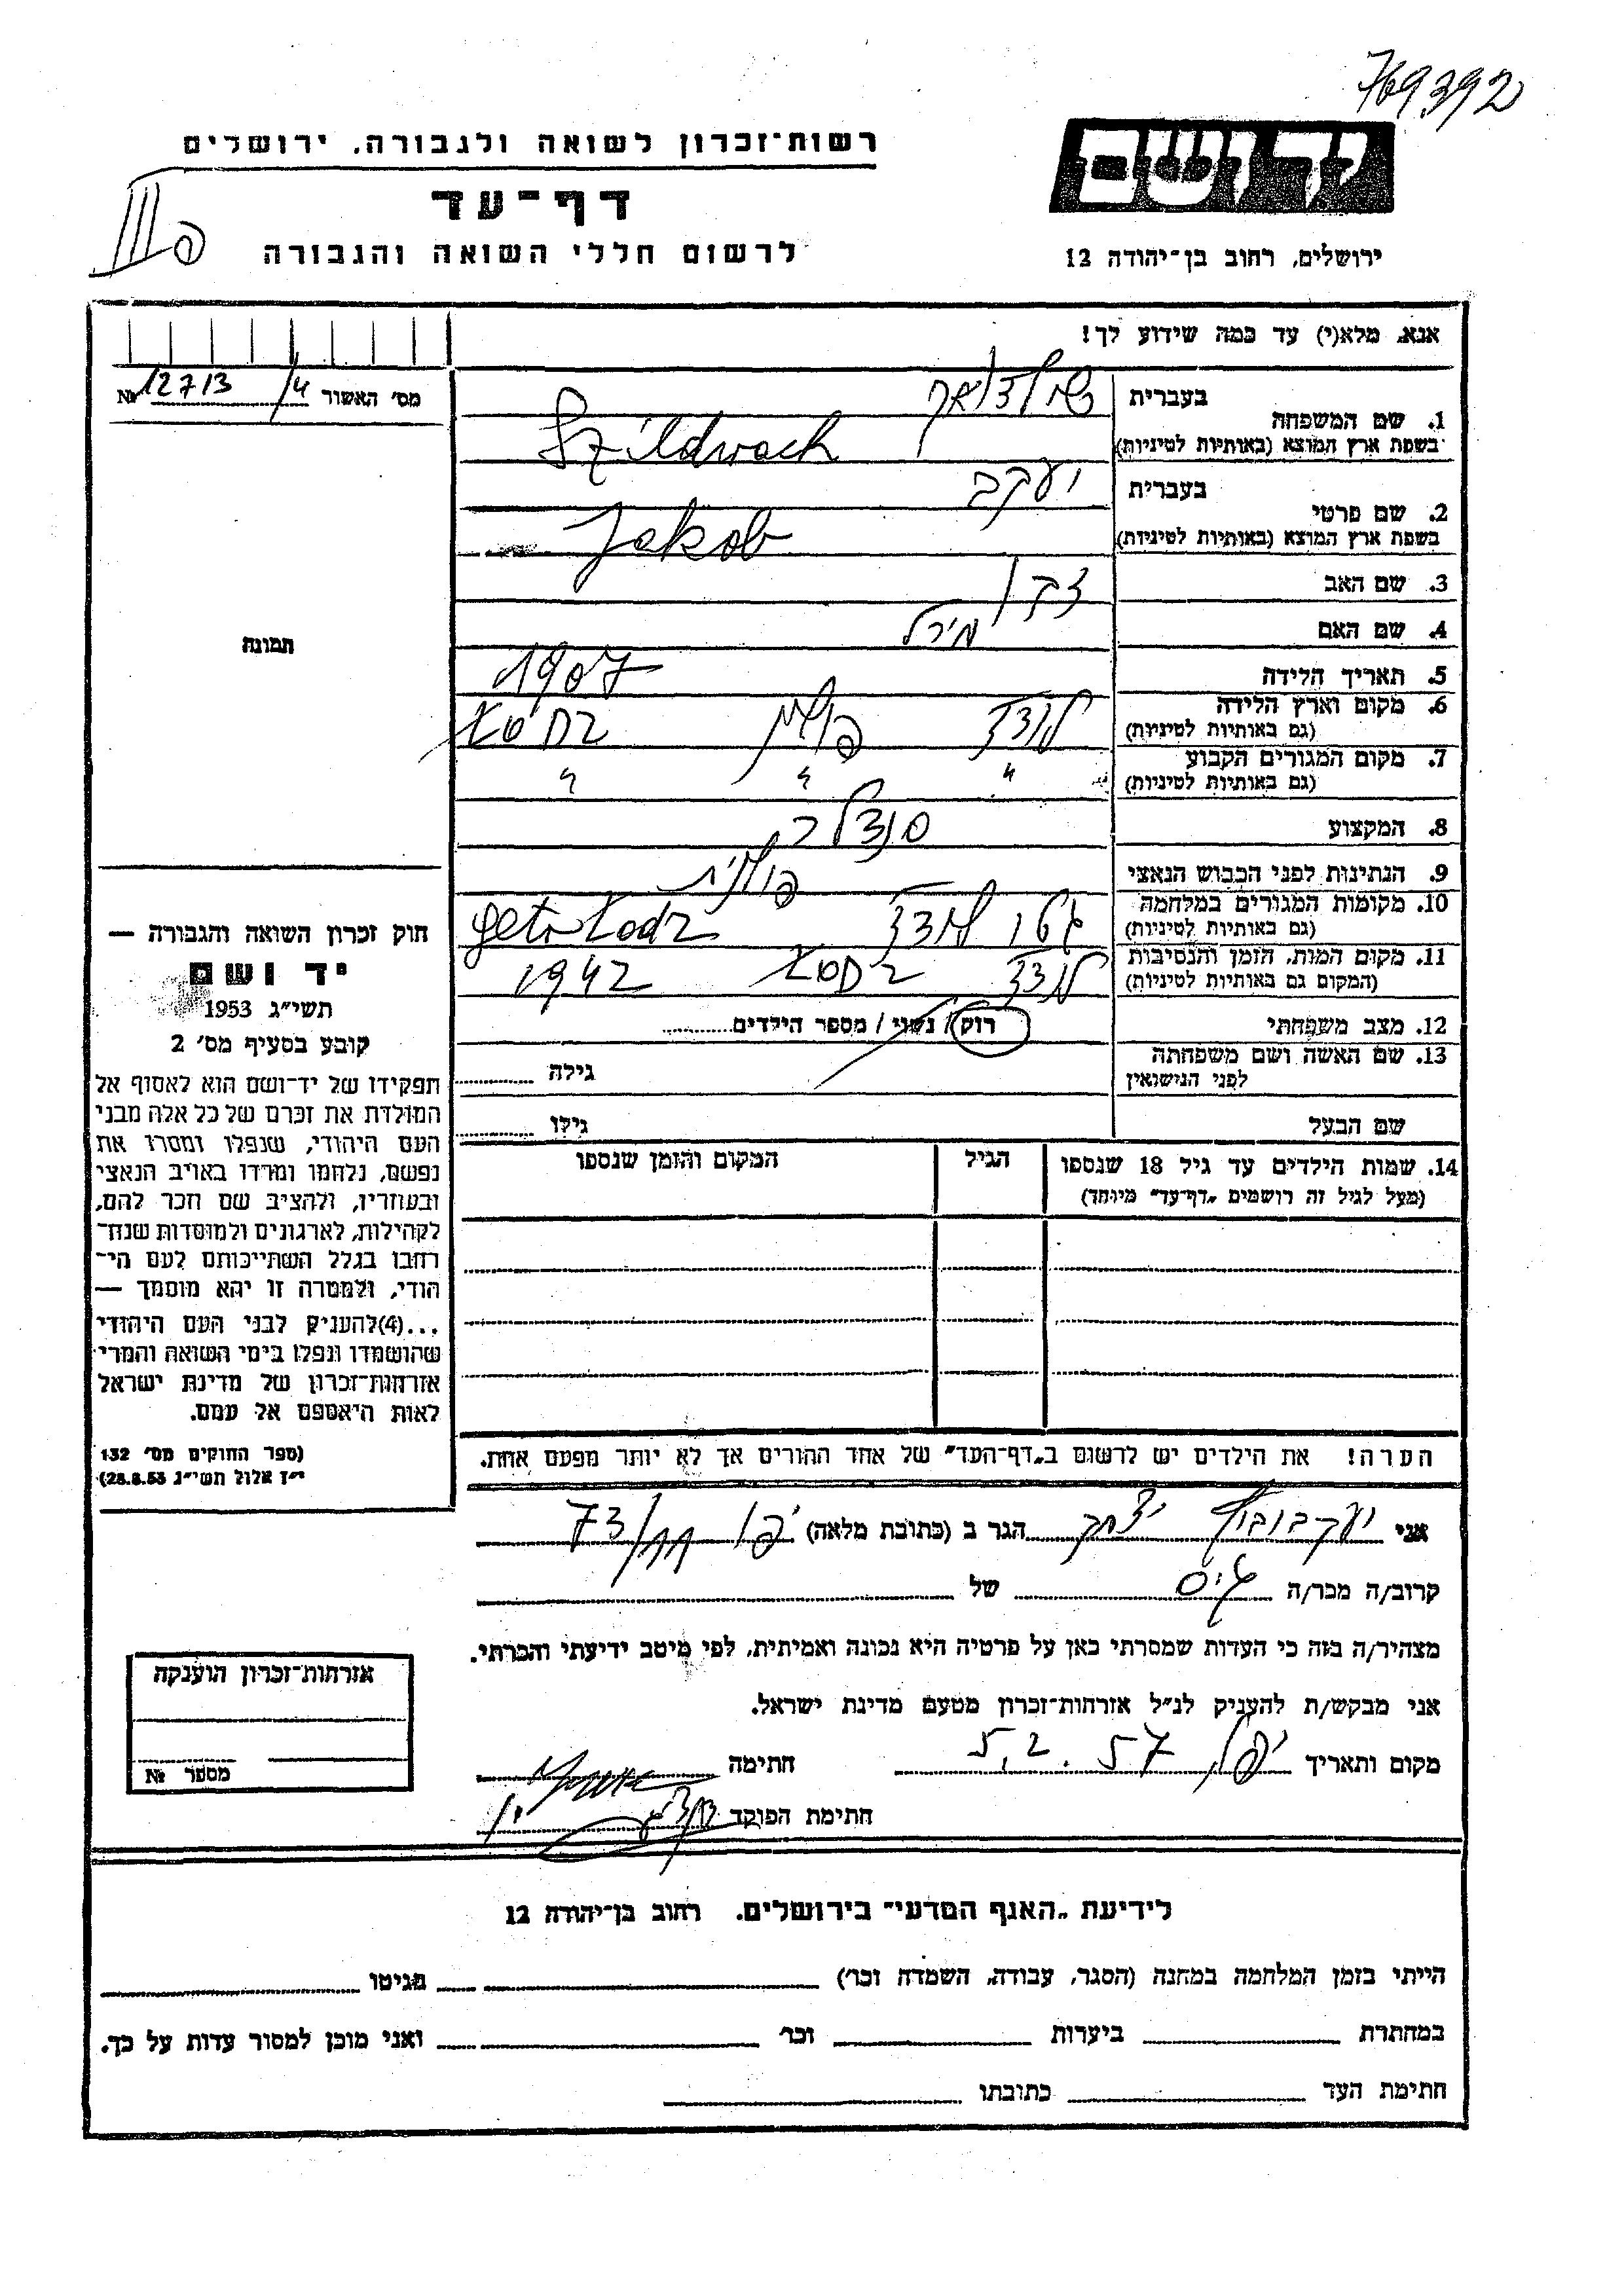 769392
רשות־זכרון לשואה ולגבורה, ירושלים
דף־עד
לרשום חללי השואה והגבורה
ידושם
ירושלים, רחוב בן־יהודה 12
אנא, מלא(י) עד כמה שידוע לך!
מס׳ האשור 4/ 12713 №
1. שם המשפחה בעברית שילדואך
בשפת ארץ המוצא (באותיות לטיניות) Szildwach
2. שם פרטי בעברית יעקב
בשפת ארץ המוצא (באותיות לטיניות) Jakob
3. שם האב
4. שם האם מירל
5. תאריך הלידה 1907
6. מקום וארץ הלידה (גם באותיות לטיניות) לודז פולין ŁODZ
7. מקום המגורים הקבוע (גם באותיות לטיניות) " " "
8. המקצוע סנדלר
9. הנתינות לפני הכבוש הנאצי פולנית
10. מקומות המגורים במלחמה (גם באותיות לטיניות) גטו לודז geto Łodz
11. מקום המות, הזמן והנסיבות (המקום גם באותיות לטיניות) לודז ŁODZ 1942
12. מצב משפחתי רוק / נשוי / מספר הילדים
13. שם האשה ושם משפחתה לפני הנישואין גילה
שם הבעל גילו
14. שמות הילדים עד גיל 18 שנספו הגיל המקום והזמן שנספו
(מעל לגיל זה רושמים „דף־עד״ מיוחד)
הערה! את הילדים יש לרשום ב„דף־העד״ של אחד ההורים אך לא יותר מפעם אחת.
תמונה
חוק זכרון השואה והגבורה —
יד ושם
תשי״ג 1953
קובע בסעיף מס׳ 2
תפקידו של יד־ושם הוא לאסוף אל
המולדת את זכרם של כל אלה מבני
העם היהודי, שנפלו ומסרו את
נפשם, נלחמו ומרדו באויב הנאצי
ובעוזריו, ולהציב שם וזכר להם,
לקהילות, לארגונים ולמוסדות שנח־
רחבו בגלל השתייכותם לעם הי־
הודי, ולמטרה זו יהא מוסמך —
...(4)להעניק לבני העם היהודי
שהושמדו ונפלו בימי השואה והמרי
אזרחות־זכרון של מדינת ישראל
לאות היאספם אל עמם.
(ספר החוקים מס׳ 132
י״ז אלול תשי״ג 28.8.53)
אני יעקבוביץ יצחק הגר ב (כתובת מלאה) יפו
קרוב/ה מכר/ה גיס של
מצהיר/ה בזה כי העדות שמסרתי כאן על פרטיה היא נכונה ואמיתית, לפי מיטב ידיעתי והכרתי.
אני מבקש/ת להעניק לנ״ל אזרחות־זכרון מטעם מדינת ישראל.
מקום ותאריך יפו, 5.2.57 חתימה
חתימת הפוקד
אזרחות־זכרון הוענקה
מספר №
לידיעת „האגף המדעי״ בירושלים. רחוב בן־יהודה 12
הייתי בזמן המלחמה במחנה (הסגר, עבודה, השמדה וכו׳) בגיטו
במחתרת ביערות וכו׳ ואני מוכן למסור עדות על כך.
חתימת העד כתובתו